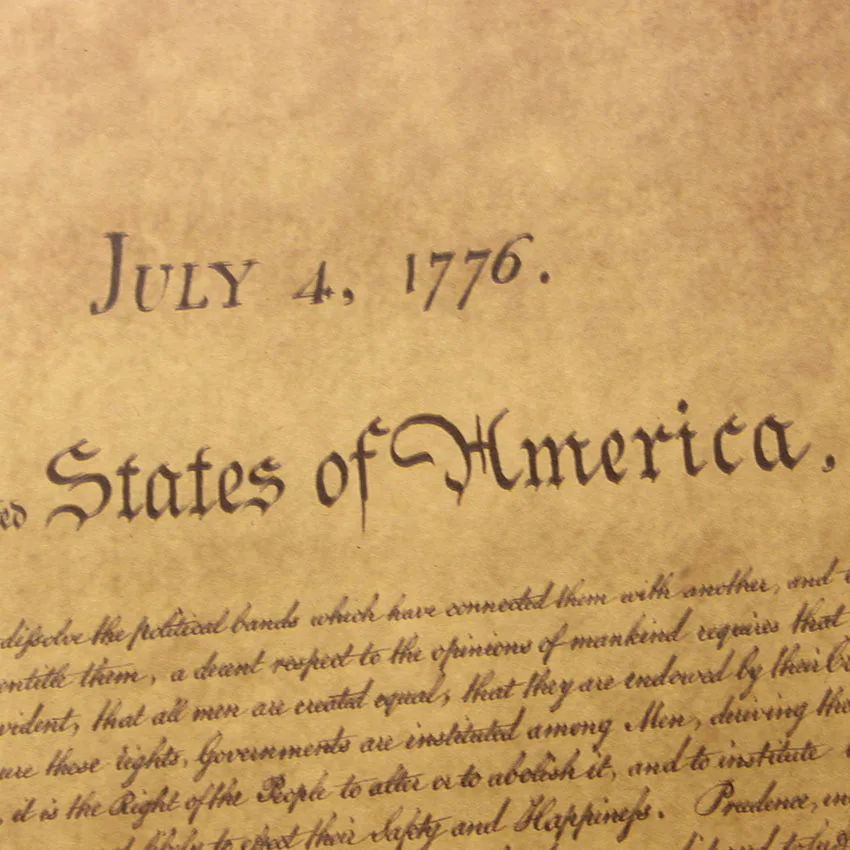 JULY 4, 1776.
ed States of America.
dissolve the political bands which have connected them with another, and
entitle them, a decent respect to the opinions of mankind requires that
vident, that all men are created equal, that they are endowed by their
ure these rights, Governments are instituted among Men, deriving
, it is the Right of the People to alter or to abolish it, and to institute
likely to effect their Safety and Happiness. Prudence, in